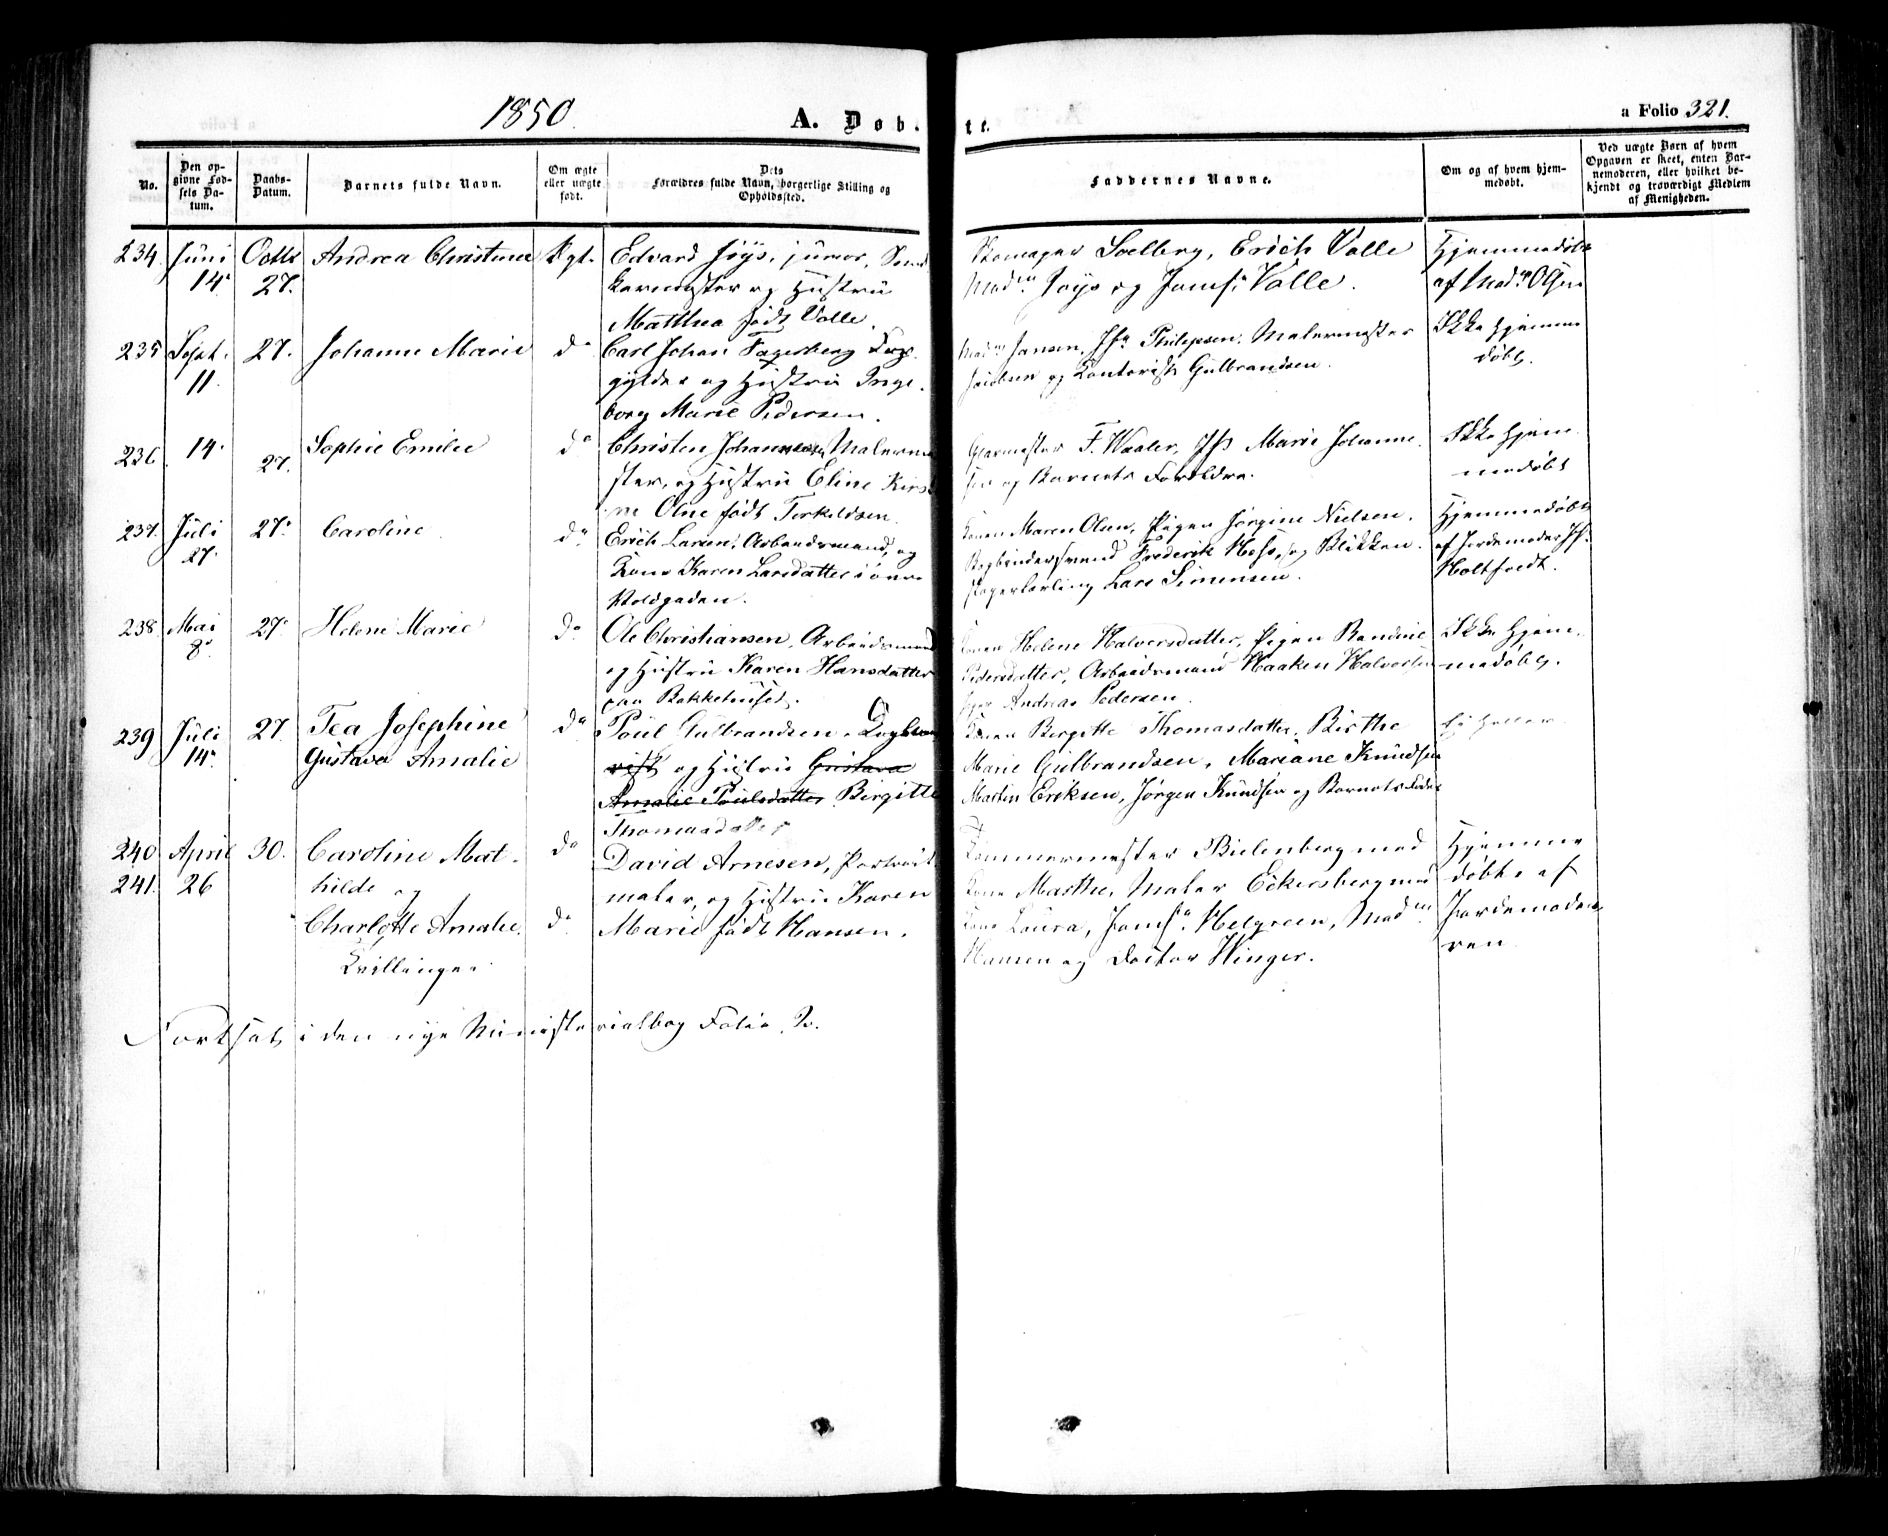 1850.
A. Døb-
te.
a Folio 321.
No.
Den op-
givne Fød-
sels Da-
tum.
Daabs-
Datum.
Barnets fulde Navn.
Om ægte
eller uægte
født.
Dets
Forældres fulde Navn, borgerlige Stilling og
Opholdssted.
Faddernes Navne.
Om og af hvem hjem-
medøbt.
Ved uægte Børn af hvem
Opgaven er skeet, enten Bar-
nemoderen, eller hvilket be-
kjendt og troværdigt Medlem
af Menigheden.
234. Juni 14. Octb 27. Andrea Christine Ægt. Edvard junior,
og Hustru
Matthea født Valle.
Skomager Soelberg, Erich Valle
Mad og Jomf. Valle.
Hjemmedøbt
af Mad
235 Sept. 11. 27. Johanne Marie do Carl Johan Fagerberg
og Hustru Inge-
borg Marie Pedersen.
Jansen, Philipsen, Malermester
og Kontorist Gulbrandsen.
Ikke hjemme
døbt.
236 14. 27. Sophie Emilie do Christen Johannesen, Malerme
ster, og Hustru Eline Kirst
ne Olne født Terkeldsen.
Glarmester F. Waaler, Marie Johanne
sen og Barnets Forældre.
Ikke hjem-
medøbt
237. Juli 27. 27. Caroline do Erich Larsen, Arbeidsmand, og
Kone Karen Larsdatter i øvre
Voldgaden.
Konen Maren Olsen, Pigen Jørgine Nielsen,
Bogbindersvend Frederik Hess, og Blikken-
slagerlærling Lars Simensen.
Hjemmedøbt
af Jordemoder
Holtfodt.
238. Mai 8. 27. Helene Marie do Ole Christiansen, Arbeidsmand
og Hustru Karen Hansdatter
paa Bakkehuset.
Konen Helene Halvorsdatter, Pigen Randine
Pedersdatter, Arbeidsmand Haaken Halvorsen
og Andreas Pedersen.
Ikke hjem-
medøbt.
239 Juli 14. 27. Tea Josephine
Gustava Amalie
do Poul Gulbrandsen,
og Hustru Gustava
Amalie Poulsdatter Birgitte
Thomasdatter
Konen Birgitte Thomasdatter, Birthe
Marie Gulbrandsen, Mariane Knudsen
Martin Eriksen, Jørgen Knudsen og Barnets Fader
Ei heller
240 April 30. Caroline Mat-
241. 26 hilde og
Charlotte Amalie.
Tvillinger
do
do
David Arnesen, Portrait
maler, og Hustru Karen
Marie født Hansen.
Tømmermester Bielenberg med
Kone Marthe, Maler Eckersberg med
Kone Laura, Jomf. Helgreen, Mad
Hansen og Doctor Winger.
Hjemme
døbte af
Jordemode-
ren
Fortsat i den nye Ministerialbog Folio